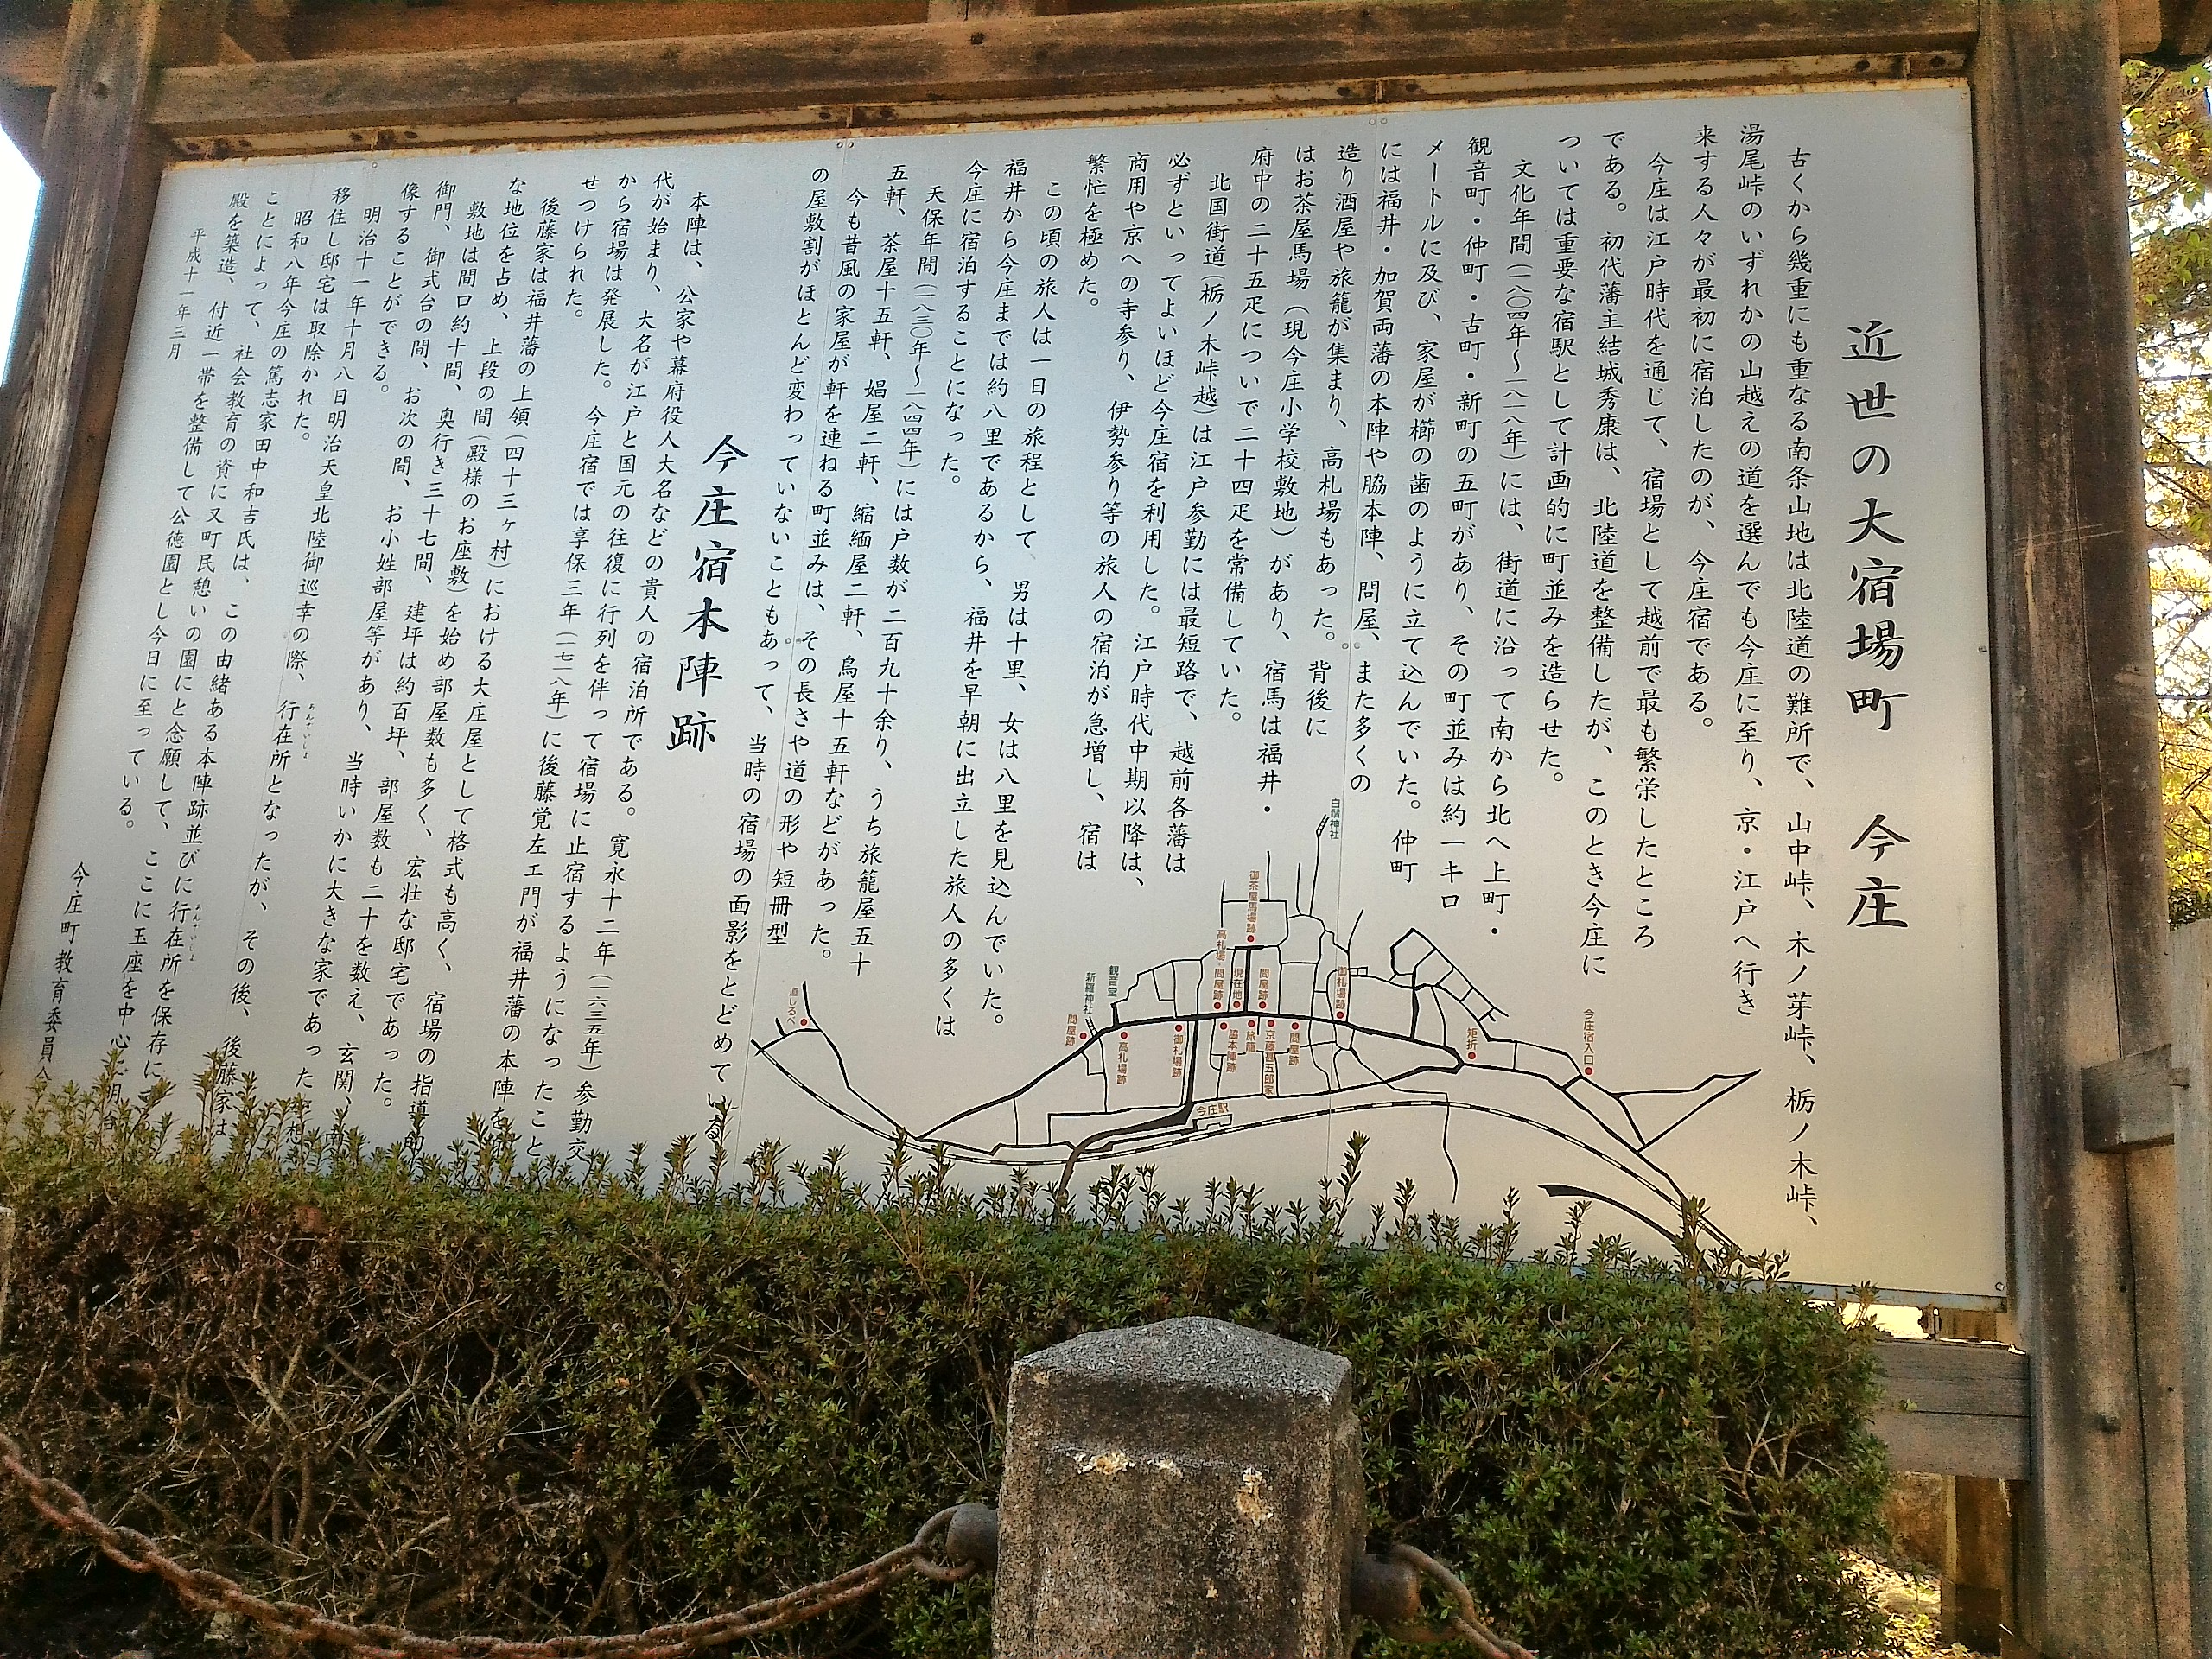 近世の大宿場町 今庄
古くから幾重にも重なる南条山地は北陸道の難所で、山中峠、木ノ芽峠、栃ノ木峠、
湯尾峠のいずれかの山越えの道を選んでも今庄に至り、京・江戸へ行き
来する人々が最初に宿泊したのが、今庄宿である。
今庄は江戸時代を通じて、宿場として越前で最も繁栄したところ
である。初代藩主結城秀康は、北陸道を整備したが、このとき今庄に
ついては重要な宿駅として計画的に町並みを造らせた。
文化年間(一八〇四年〜一八一八年)には、街道に沿って南から北へ上町・
観音町・仲町・古町・新町の五町があり、その町並みは約一キロ
メートルに及び、家屋が櫛の歯のように立て込んでいた。仲町
には福井・加賀両藩の本陣や脇本陣、問屋、また多くの
造り酒屋や旅籠が集まり、高札場もあった。背後に
はお茶屋馬場(現今庄小学校敷地)があり、宿馬は福井・
府中の二十五疋についで二十四疋を常備していた。
北国街道(栃ノ木峠越)は江戸参勤には最短路で、越前各藩は
必ずといってよいほど今庄宿を利用した。江戸時代中期以降は、
商用や京への寺参り、伊勢参り等の旅人の宿泊が急増し、宿は
繁忙を極めた。
この頃の旅人は一日の旅程として、男は十里、女は八里を見込んでいた。
福井から今庄までは約八里であるから、福井を早朝に出立した旅人の多くは
今庄に宿泊することになった。
天保年間(一八三〇年〜一八四四年)には戸数が二百九十余り、うち旅籠屋五十
五軒、茶屋十五軒、娼屋二軒、縮緬屋二軒、鳥屋十五軒などがあった。
今も昔風の家屋が軒を連ねる町並みは、その長さや道の形や短冊型
の屋敷割がほとんど変わっていないこともあって、当時の宿場の面影をとどめている。
今庄宿本陣跡
本陣は、公家や幕府役人大名などの貴人の宿泊所である。寛永十二年(一六三五年)参勤交
代が始まり、大名が江戸と国元の往復に行列を伴って宿場に止宿するようになったこと
から宿場は発展した。今庄宿では享保三年(一七一八年)に後藤覚左エ門が福井藩の本陣を
せつけられた。
後藤家は福井藩の上領(四十三ヶ村)における大庄屋として格式も高く、宿場の指導的
な地位を占め、上段の間(殿様のお座敷)を始め部屋数も多く、宏壮な邸宅であった。
敷地は間口約十間、奥行き三十七間、建坪は約百坪、部屋数も二十を数え、玄関、
御門、御式台の間、お次の間、お小姓部屋等があり、当時いかに大きな家であった
像することができる。
明治十一年十月八日明治天皇北陸御巡幸の際、行在所となったが、その後、後藤家は
あんざいしょ
移住し邸宅は取除かれた。
昭和八年今庄の篤志家田中和吉氏は、この由緒ある本陣跡並びに行在所を保存に
あんざいしょ
ことによって、社会教育の資に又町民憩いの園にと念願して、ここに玉座を中心
殿を築造、付近一帯を整備して公徳園とし今日に至っている。
平成十一年三月
今庄町教育委員会
白鬚神社
御茶屋馬場跡
高札場
問屋跡
現在地
問屋跡
御札場跡
観音堂
新羅神社
問屋跡
高札場跡
御札場跡
脇本陣跡
旅籠
京藤甚五郎家
問屋跡
矩折
今庄宿入口
道しるべ
今庄駅